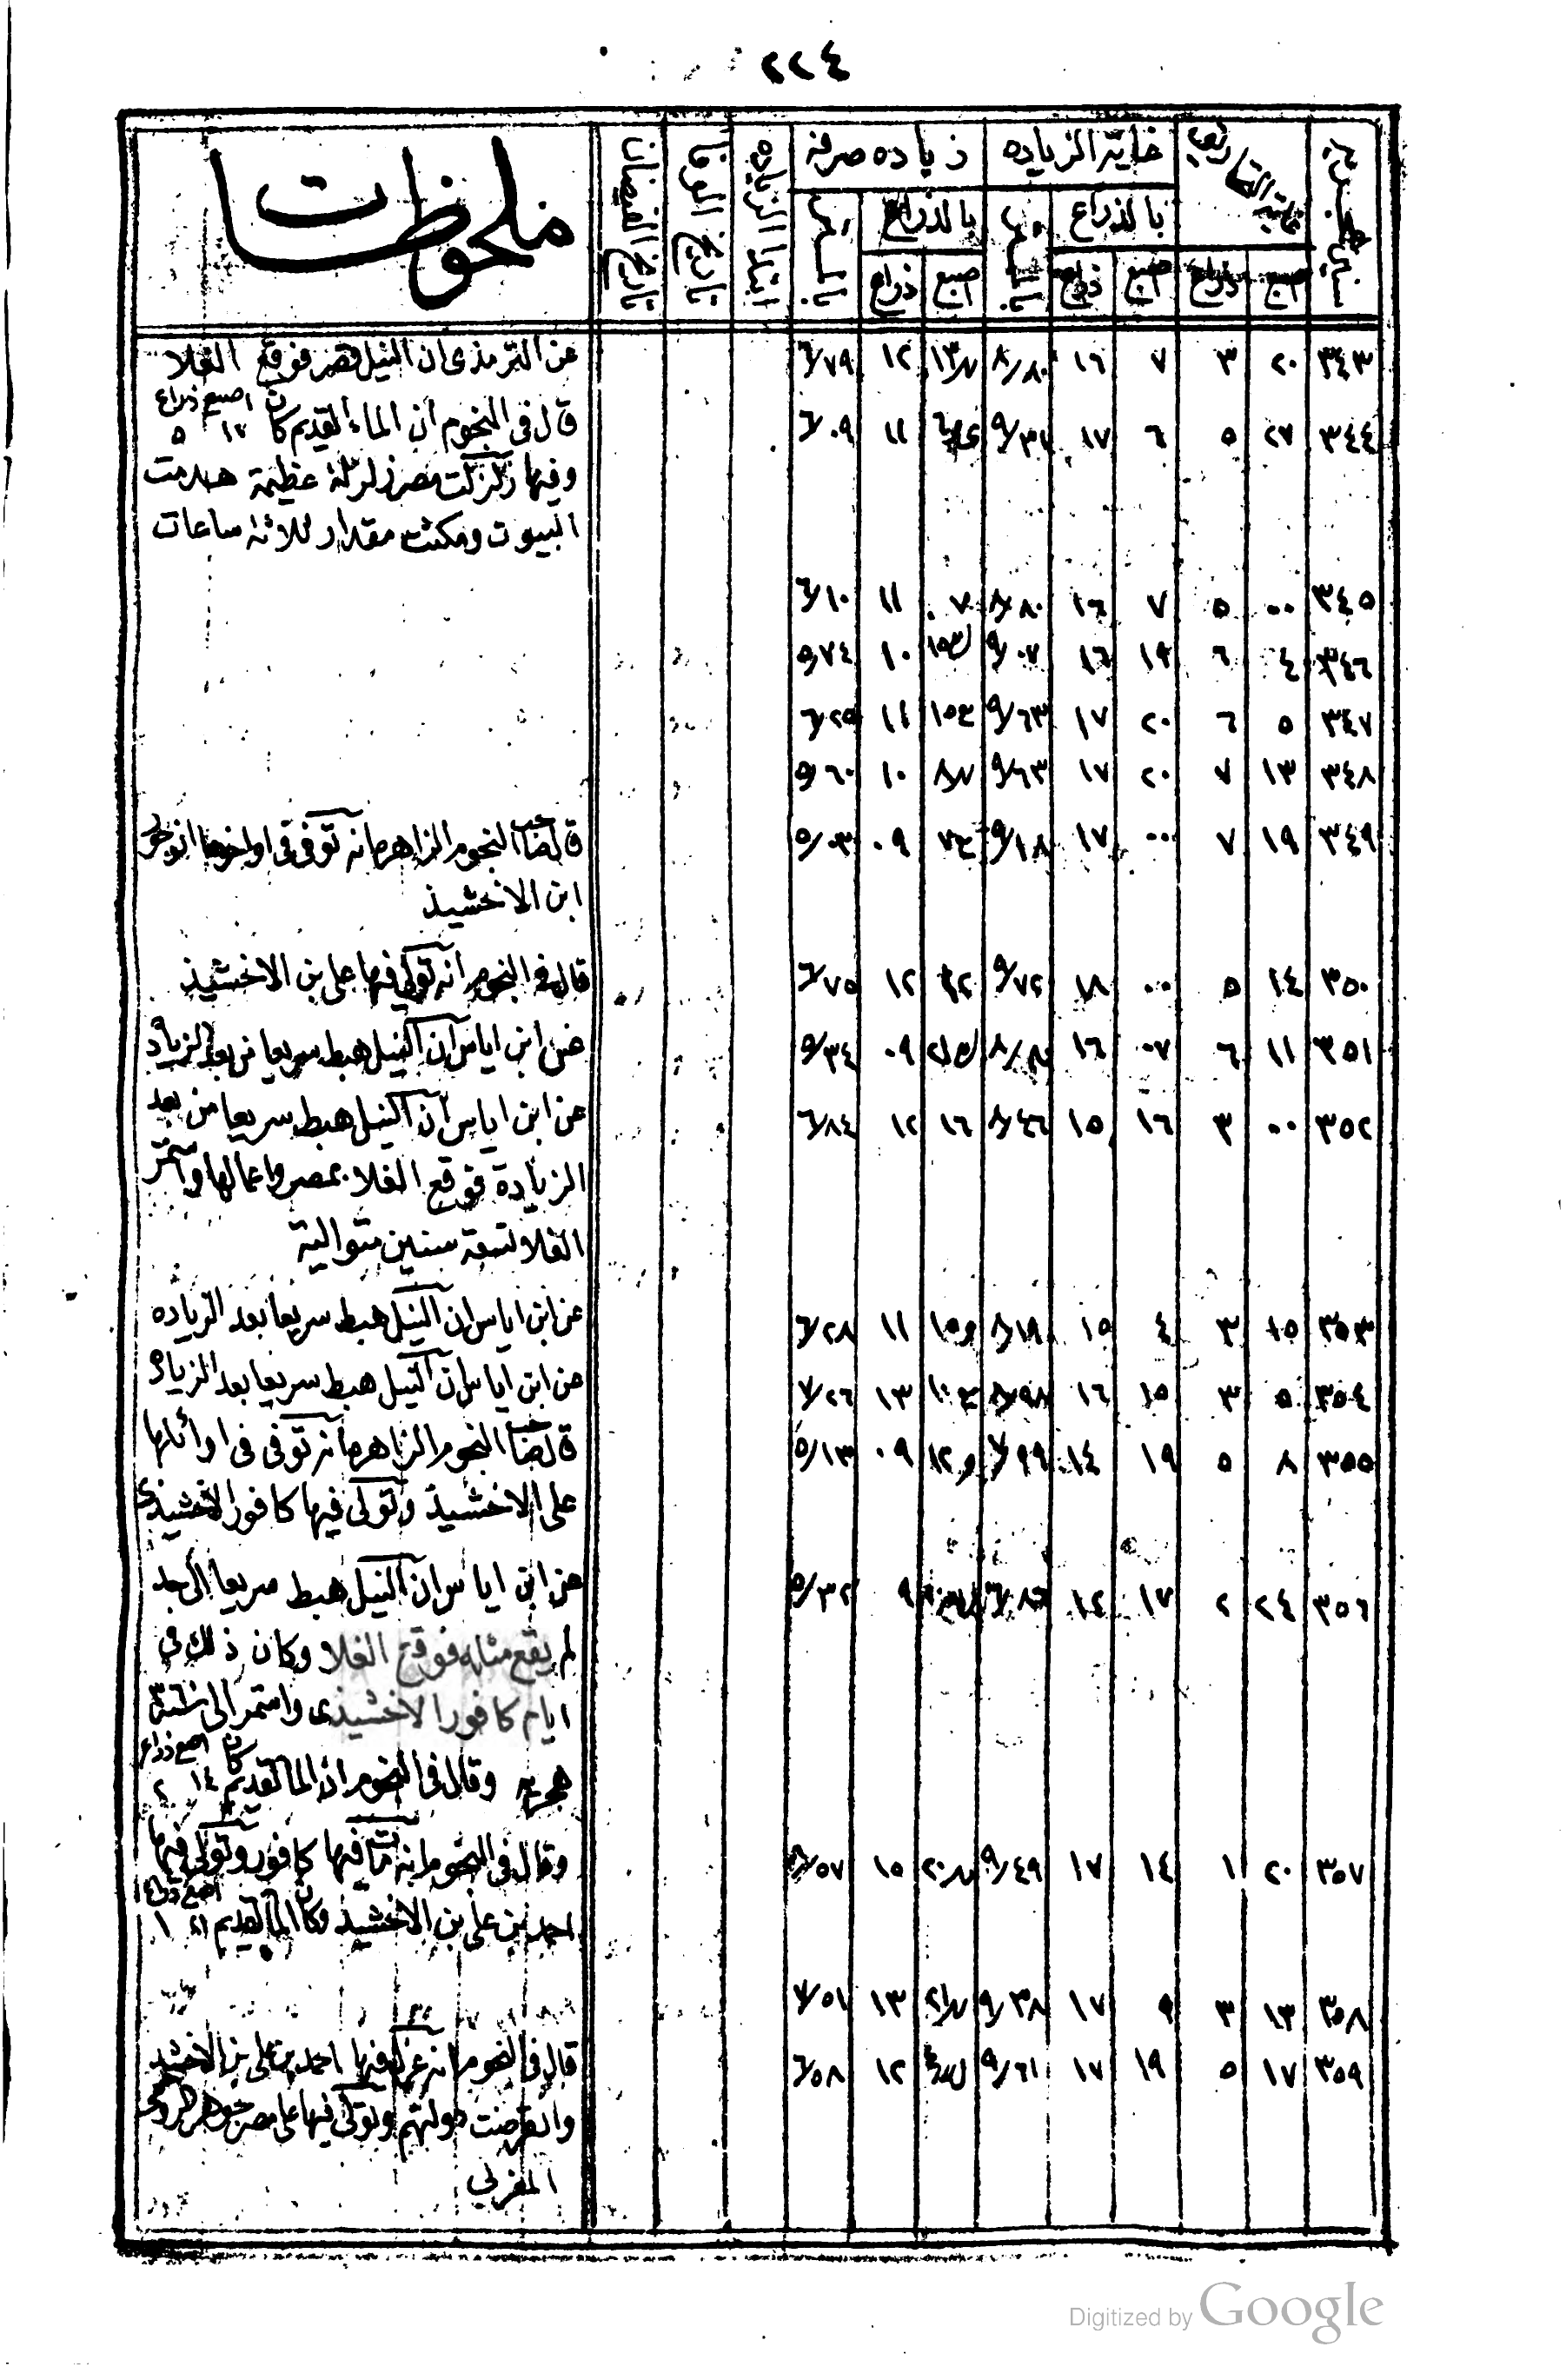 ٢٢٤
سنه هجريه
نهاية التحاريق
غاية الزياده
زياده صرفه
ابتدا الزياده
تاريخ الوفا
تاريخ الفيضان
ملحوظات
بالذراع
بالمتر
بالذراع
بالمتر
اصبع ذراع اصبع ذراع اصبع ذراع
٣٤٣ ٢٠ ٣ ٧ ١٦ ٨/٨٠ ١٢ ٦/٧٩ عن الترمذى ان النيل قصر فوقع الغلا
٣٤٤ ٢٧ ٥ ٦ ١٧ ٩/٣١ ١١ ٦/٠٩ قال فى النجوم ان الماء القديم كان اصبع ١٧ ذراع ٥
وفيها زلزلت مصر زلزلة عظيمة هدمت
البيوت ومكثت مقدار ثلاثة ساعات
٣٤٥ ٠٠ ٥ ٧ ١٦ ٨/٨٠ ٧ ١١ ٦/١٠
٣٤٦ ٤ ٦ ١٩ ١٦ ٩/٠٧ ١٠ ٥/٧٤
٣٤٧ ٥ ٦ ٢٠ ١٧ ٩/٦٣ ١١ ٦/٢٥
٣٤٨ ١٣ ٧ ٢٠ ١٧ ٩/٦٣ ١٠ ٥/٦٠
٣٤٩ ١٩ ٧ ٠٠ ١٧ ٩/١٨ ٠٩ ٥/٠٣ قال صاحب النجوم الزاهره انه توفى فى اواخرها انوجور
ابن الاخشيذ
٣٥٠ ١٤ ٥ ٠٠ ١٨ ٩/٧٢ ١٢ ٦/٧٥ قال فى النجوم انه تولى فيها على بن الاخشيذ
٣٥١ ١١ ٦ ٠٧ ١٦ ٨/٨٠ ٠٩ ٥/٣٤ عن ابن اياس ان النيل هبط سريعا من بعد الزياده
٣٥٢ ٠٠ ٣ ١٦ ١٥ ٨/٤٦ ١٦ ١٢ ٦/٨٤ عن ابن اياس ان النيل هبط سريعا من بعد
الزيادة فوقع الغلا بمصر واعمالها واستمر
الغلا تسعة سنين متوالية
٣٥٣ ١٥ ٣ ٤ ١٥ ٨/١٨ ١١ ٦/٢٨ عن ابن اياس ان النيل هبط سريعا بعد الزياده
٣٥٤ ٥ ٣ ١٥ ١٦ ٨/٩٨ ١٣ ٧/٢٦ عن ابن اياس ان النيل هبط سريعا بعد الزياده
٣٥٥ ٨ ٥ ١٩ ١٤ ٧/٩٩ ٠٩ ٥/١٣ قال صاحب النجوم الزاهره انه توفى فى اوائلها
على الاخشيذ وتولى فيها كافور الاخشيذى
٣٥٦ ٢٤ ٢ ١٧ ١٢ ٦/٨٦ ٩ ٥/٣٢ عن ابن اياس ان النيل هبط سريعا الى حد
لم يقع مثله فوقع الغلا وكان ذلك فى
ايام كافور الاخشيذى واستمر الى سنة
هجريه وقال فى النجوم ان الما القديم كان اصبع ١٤ ذراع ٢
٣٥٧ ٢٠ ١ ١٤ ١٧ ٩/٤٩ ١٥ ٨/٥٧ وقال فى النجوم انه مات فيها كافور وتولى فيها
احمد بن على بن الاخشيذ وكان الما القديم اصبع ٢١ ذراع ١
٣٥٨ ١٣ ٣ ٩ ١٧ ٩/٣٨ ١٣ ٧/٥١
٣٥٩ ١٧ ٥ ١٩ ١٧ ٩/٦١ ١٢ ٦/٥٨ قال فى النجوم انه عزل فيها احمد بن على بن الاخشيد
وانقرضت دولتهم وتولى فيها على مصر جوهر
المغربى
Digitized by Google